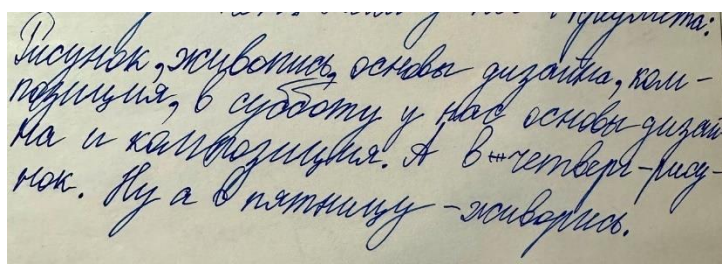 у нас 4 предмета:
Рисунок, живопись, основы дизайна, ком-
позиция, в субботу у нас основы дизай
на и композиция. А в четверг-рису-
нок. Ну а в пятницу - живопись.